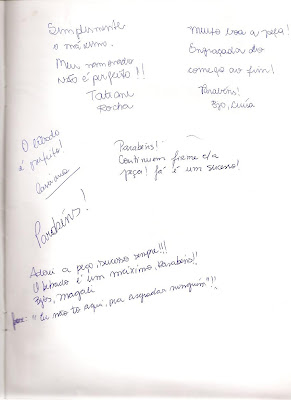 Simplesmente
o máximo.
Meu namorado
não é perfeito!!
Tatiane
Rocha
Muito boa a peça!
Engraçada do
começo ao fim!
Parabéns!
Bjo, Lívia
O Libado
é perfeito!
Parabéns!
Continuem firme c/a
peça! Já é um sucesso!
Parabéns!
Adorei a peça, sucesso sempre!!!
O Libado é um máximo, Parabéns!!
Bjos, Magali
"Eu não to aqui, pra agradar ninguém"!!